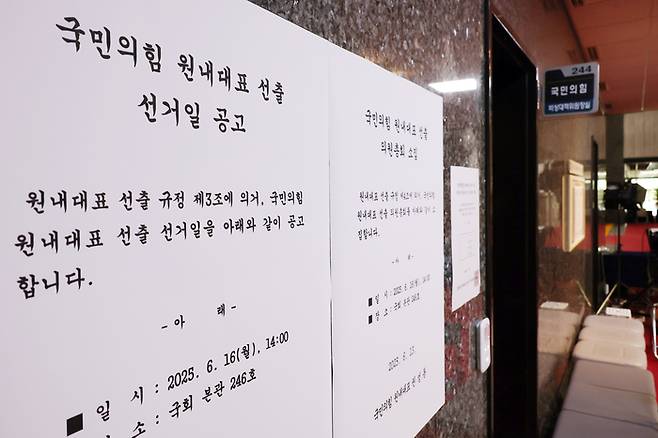 국민의힘 원내대표 선출
선거일 공고
원내대표 선출 규정 제3조에 의거, 국민의힘
원내대표 선출 선거일을 아래와 같이 공고
합니다.
- 아 래 -
■ 일 시 : 2025. 6. 16(월), 14:00
■ 장 소 : 국회 본관 246호
국민의힘 원내대표 선출
의원총회 소집
원내대표 선출 의원총회를 아래와 같이 소
집합니다.
- 아 래 -
■ 일 시 : 2025. 6. 16(월), 14:00
■ 장 소 : 국회 본관 246호
2025. 6. 13.
국민의힘 원내대표
244
국민의힘
비상대책위원장실